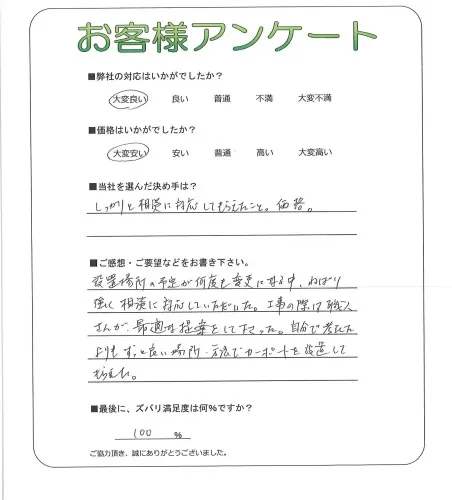 お客様アンケート
■弊社の対応はいかがでしたか？
大変良い 良い 普通 不満 大変不満
■価格はいかがでしたか？
大変安い 安い 普通 高い 大変高い
■当社を選んだ決め手は？
しっかりと相談に対応してもらえたこと。価格。
■ご感想・ご要望などをお書き下さい。
設置場所の予定が何度も変更になる中、ねばり
強く相談に対応していただいた。工事の際は職人
さんが、最適な提案をして下さった。自分で考えた
よりもずっと良い場所・方法でカーポートを設置して
もらえた。
■最後に、ズバリ満足度は何％ですか？
100 ％
ご協力頂き、誠にありがとうございました。